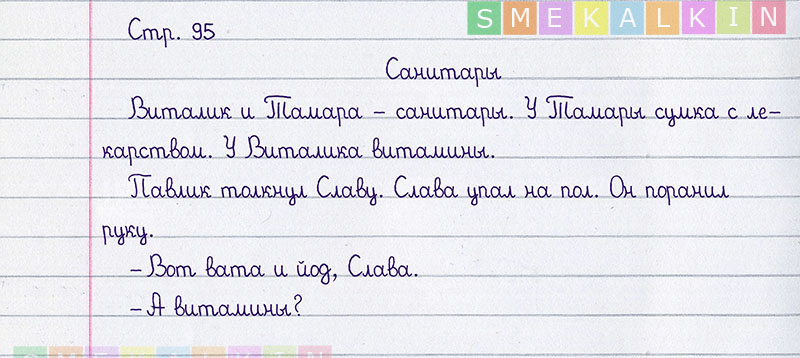 SMEKALKIN
Стр. 95
Санитары
Виталик и Тамара – санитары. У Тамары сумка с ле-
карством. У Виталика витамины.
Павлик толкнул Славу. Слава упал на пол. Он поранил
руку.
– Вот вата и йод, Слава.
– А витамины?
SMEKALKIN